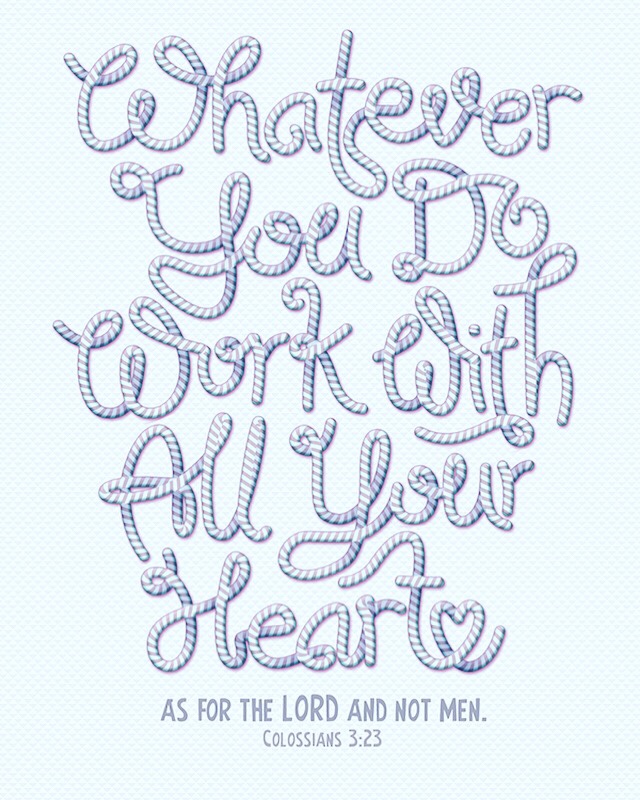 Whatever
You Do
Work With
All Your
Heart
AS FOR THE LORD AND NOT MEN.
COLOSSIANS 3:23